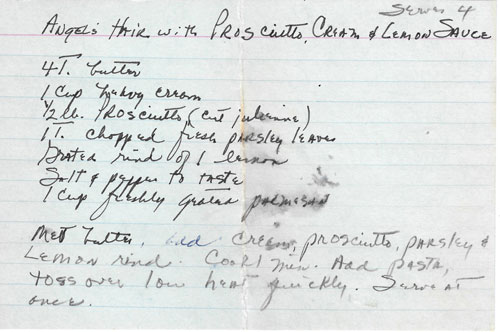 Serves 4
Angel's Hair with Prosciutto, Cream & Lemon Sauce
4 T. butter
1 Cup heavy cream
1/2 lb. Prosciutto (cut julienne)
1 T. chopped fresh parsley leaves
Grated rind of 1 lemon
Salt & pepper to taste
1 Cup freshly grated parmesan
Melt butter, add cream, prosciutto, parsley &
Lemon rind. Cook 1 min. Add pasta,
toss over low heat quickly. Serve at
once.